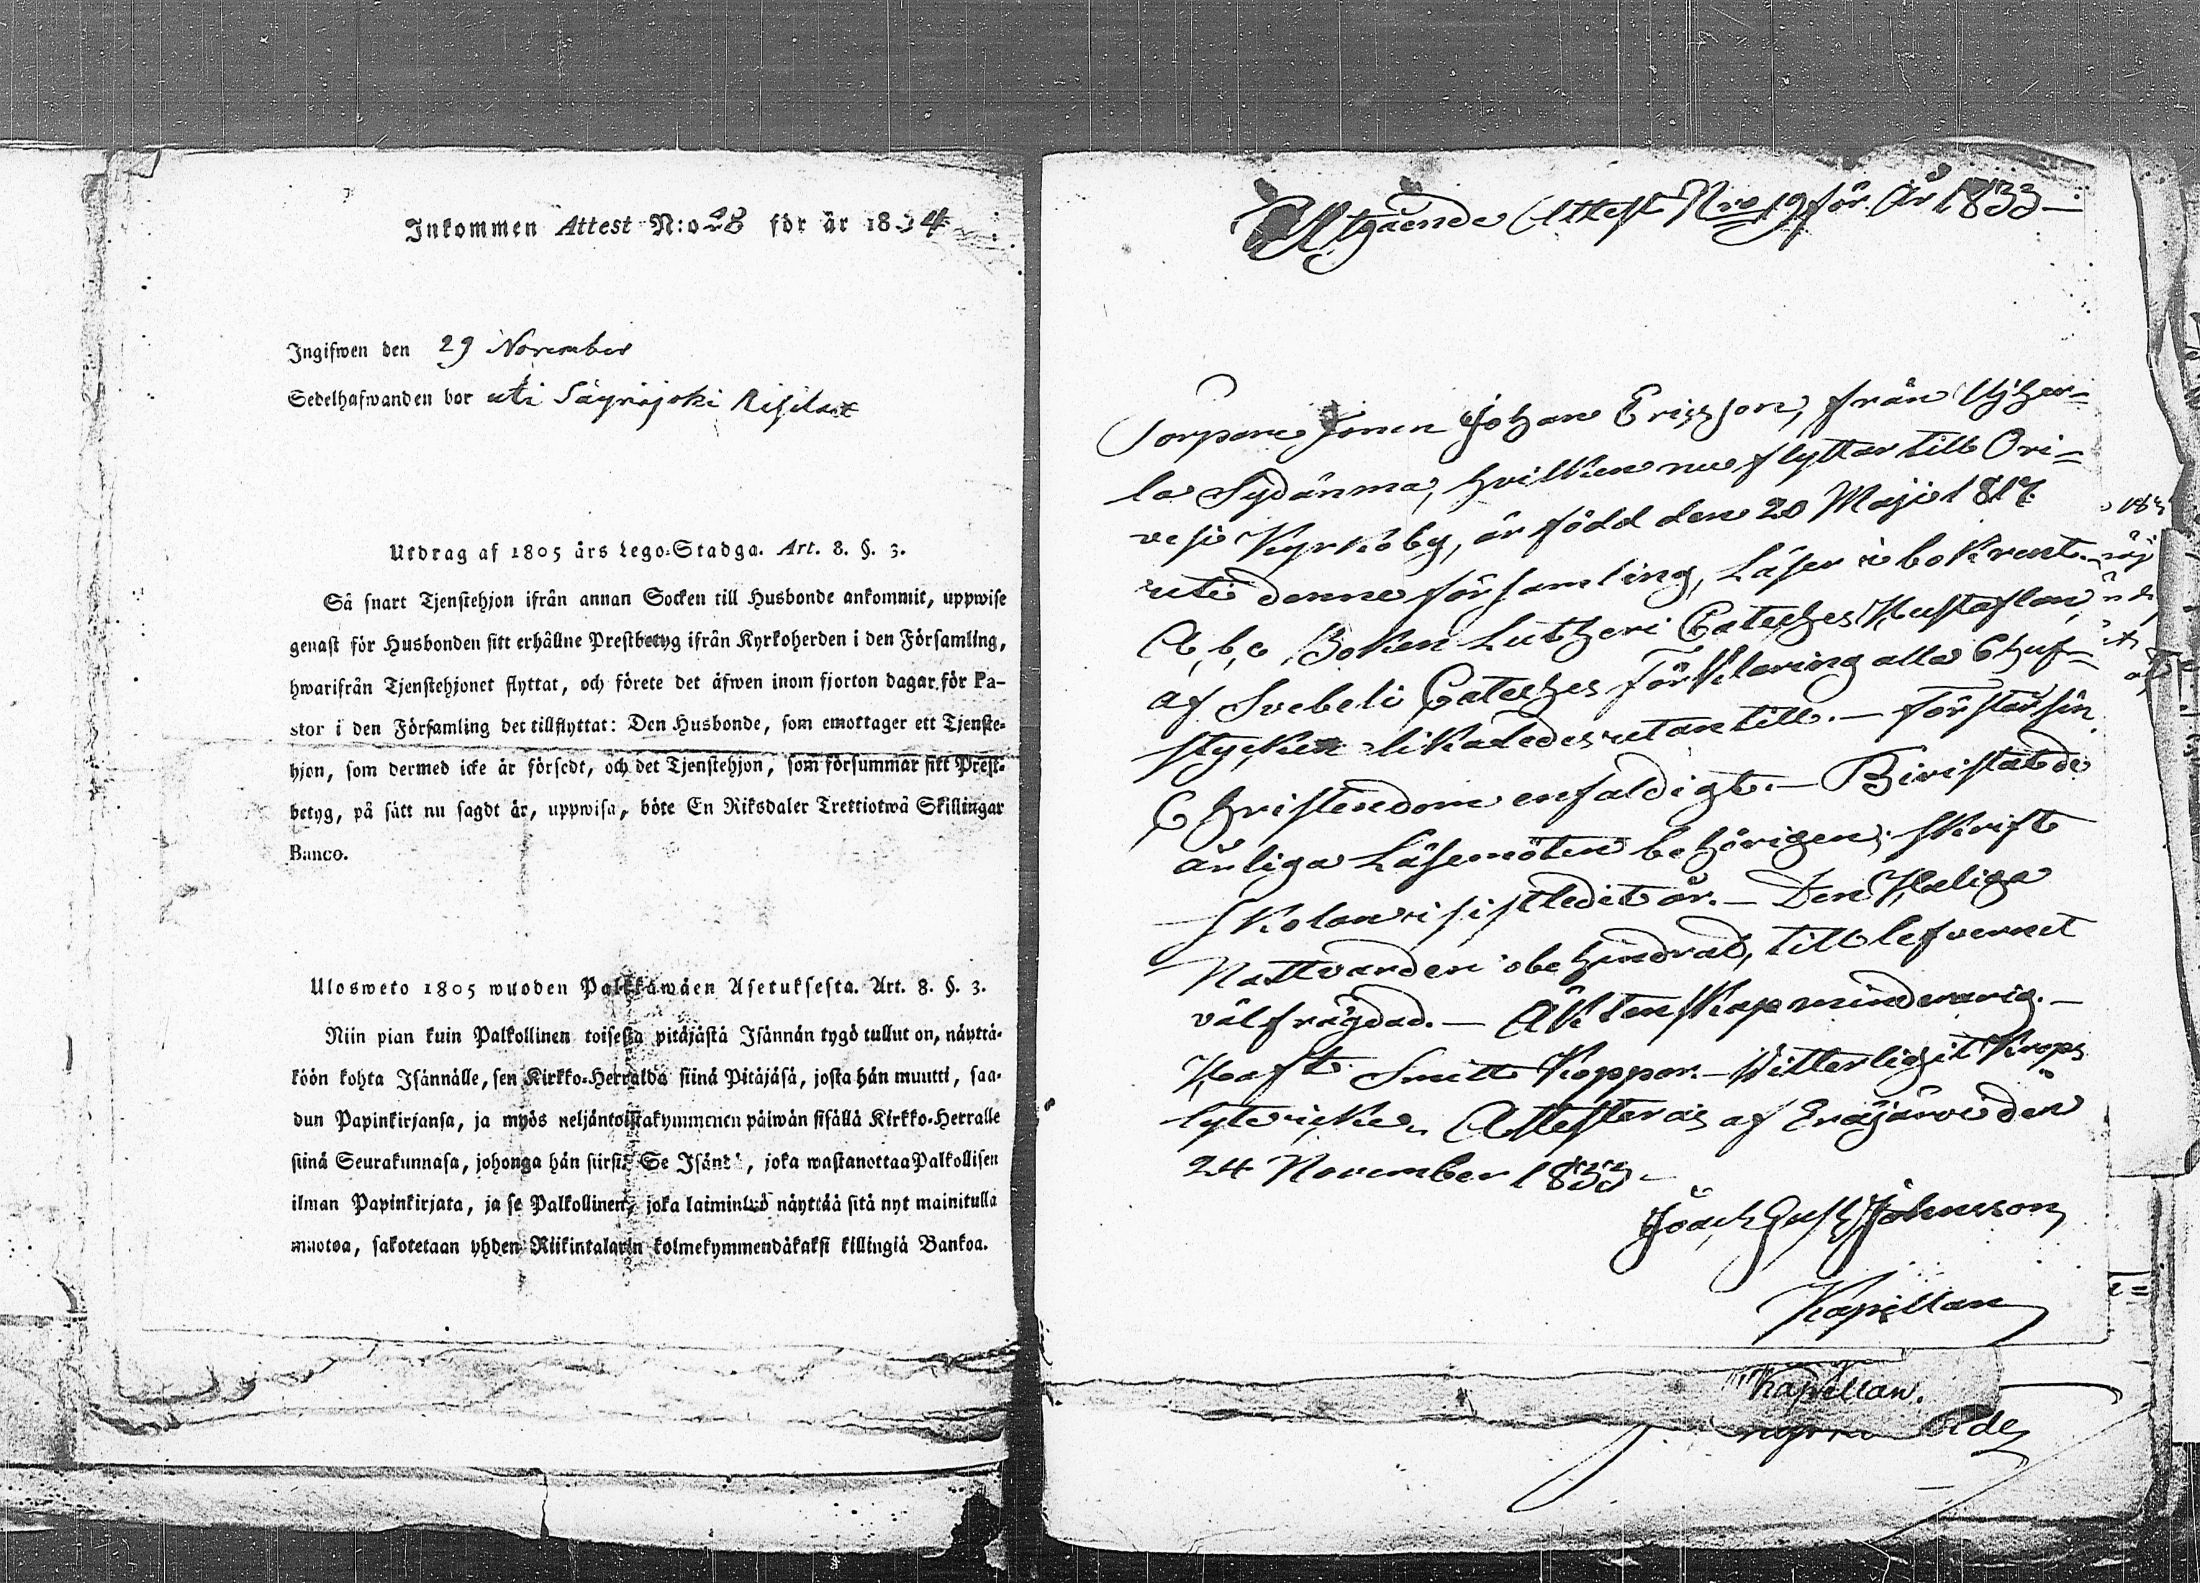 Inkommen Attest N:o 28 för år 1834
Ingifwen den 29 November
Sedelhafwanden bor uti Säynäjoki
Utdrag af 1805 års Lego-Stadga. Art. 8. §. 3.
Så snart Tjenstehjon ifrån annan Socken till Husbonde ankommit, uppwise
genast för Husbonden sitt erhållne Prestbetyg ifrån Kyrkoherden i den Församling,
hwarifrån Tjenstehjonet flyttat, och förete det äfwen inom fjorton dagar för Pa-
stor i den Församling det tillflyttat: Den Husbonde, som emottager ett Tjenste-
hjon, som dermed icke är försedt, och det Tjenstehjon, som försummar sitt Prest-
betyg, på sätt nu sagdt är, uppwisa, böte En Riksdaler Trettiotwå Skillingar
Banco.
Ulosweto 1805 wuoden Palkkawäen Asetuksesta. Art. 8. §. 3.
Niin pian kuin Palkollinen toisesta pitäjästä Isännän tygö tullut on, näyttä-
köön kohta Isännälle, sen Kirkko-Herralda siinä Pitäjäsä, josta hän muutti, saa-
dun Papinkirjansa, ja myös neljäntoistakymmenen päiwän sisällä Kirkko-Herralle
siinä Seurakunnasa, johonga hän siirsi. Se Isändä, joka wastanottaa Palkollisen
ilman Papinkirjata, ja se Palkollinen, joka laiminlyö näyttää sitä nyt mainitulla
muotoa, sakotetaan yhden Riikintalarin kolmekymmendäkaksi killingiä Bankoa.
Utgående Attest Nro 19 för År 1833
Torpare Sonen Johan Ericsson, från Ujher-
la Sydänma, hvilken nu flyttar till Ori-
vesi Kyrkoby, är född den 20 Maji 1817
uti denne församling, Läser i bok rent.
A, b, c, Boken Lutheri Cateches Hustaflan,
af Svebeli Cateches Förklaring alla 6 huf-
stycken likaledes utantill. — Förstår sin
Christendom enfaldigt. — Bivistat de
årliga Läsemöten behörigen; Skrift
Skolan i sistledit år. — Den Heliga
Nattvarden obehindrad, till lefvernet
välfrägdad. — Äktenskap minderårig. —
Haft Smitt Koppor. — Vitterligit Krops
lyte icke. Attesteras af Eräjärvi den
24 November 1833
Johnsson
Kapellan
Kapellan.